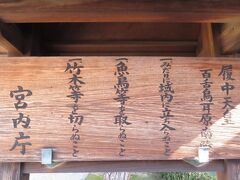 履中天皇
百舌鳥耳原南陵
一みだりに域内に立入らぬこと
一魚鳥等を取らぬこと
一竹木等を切らぬこと
宮内庁